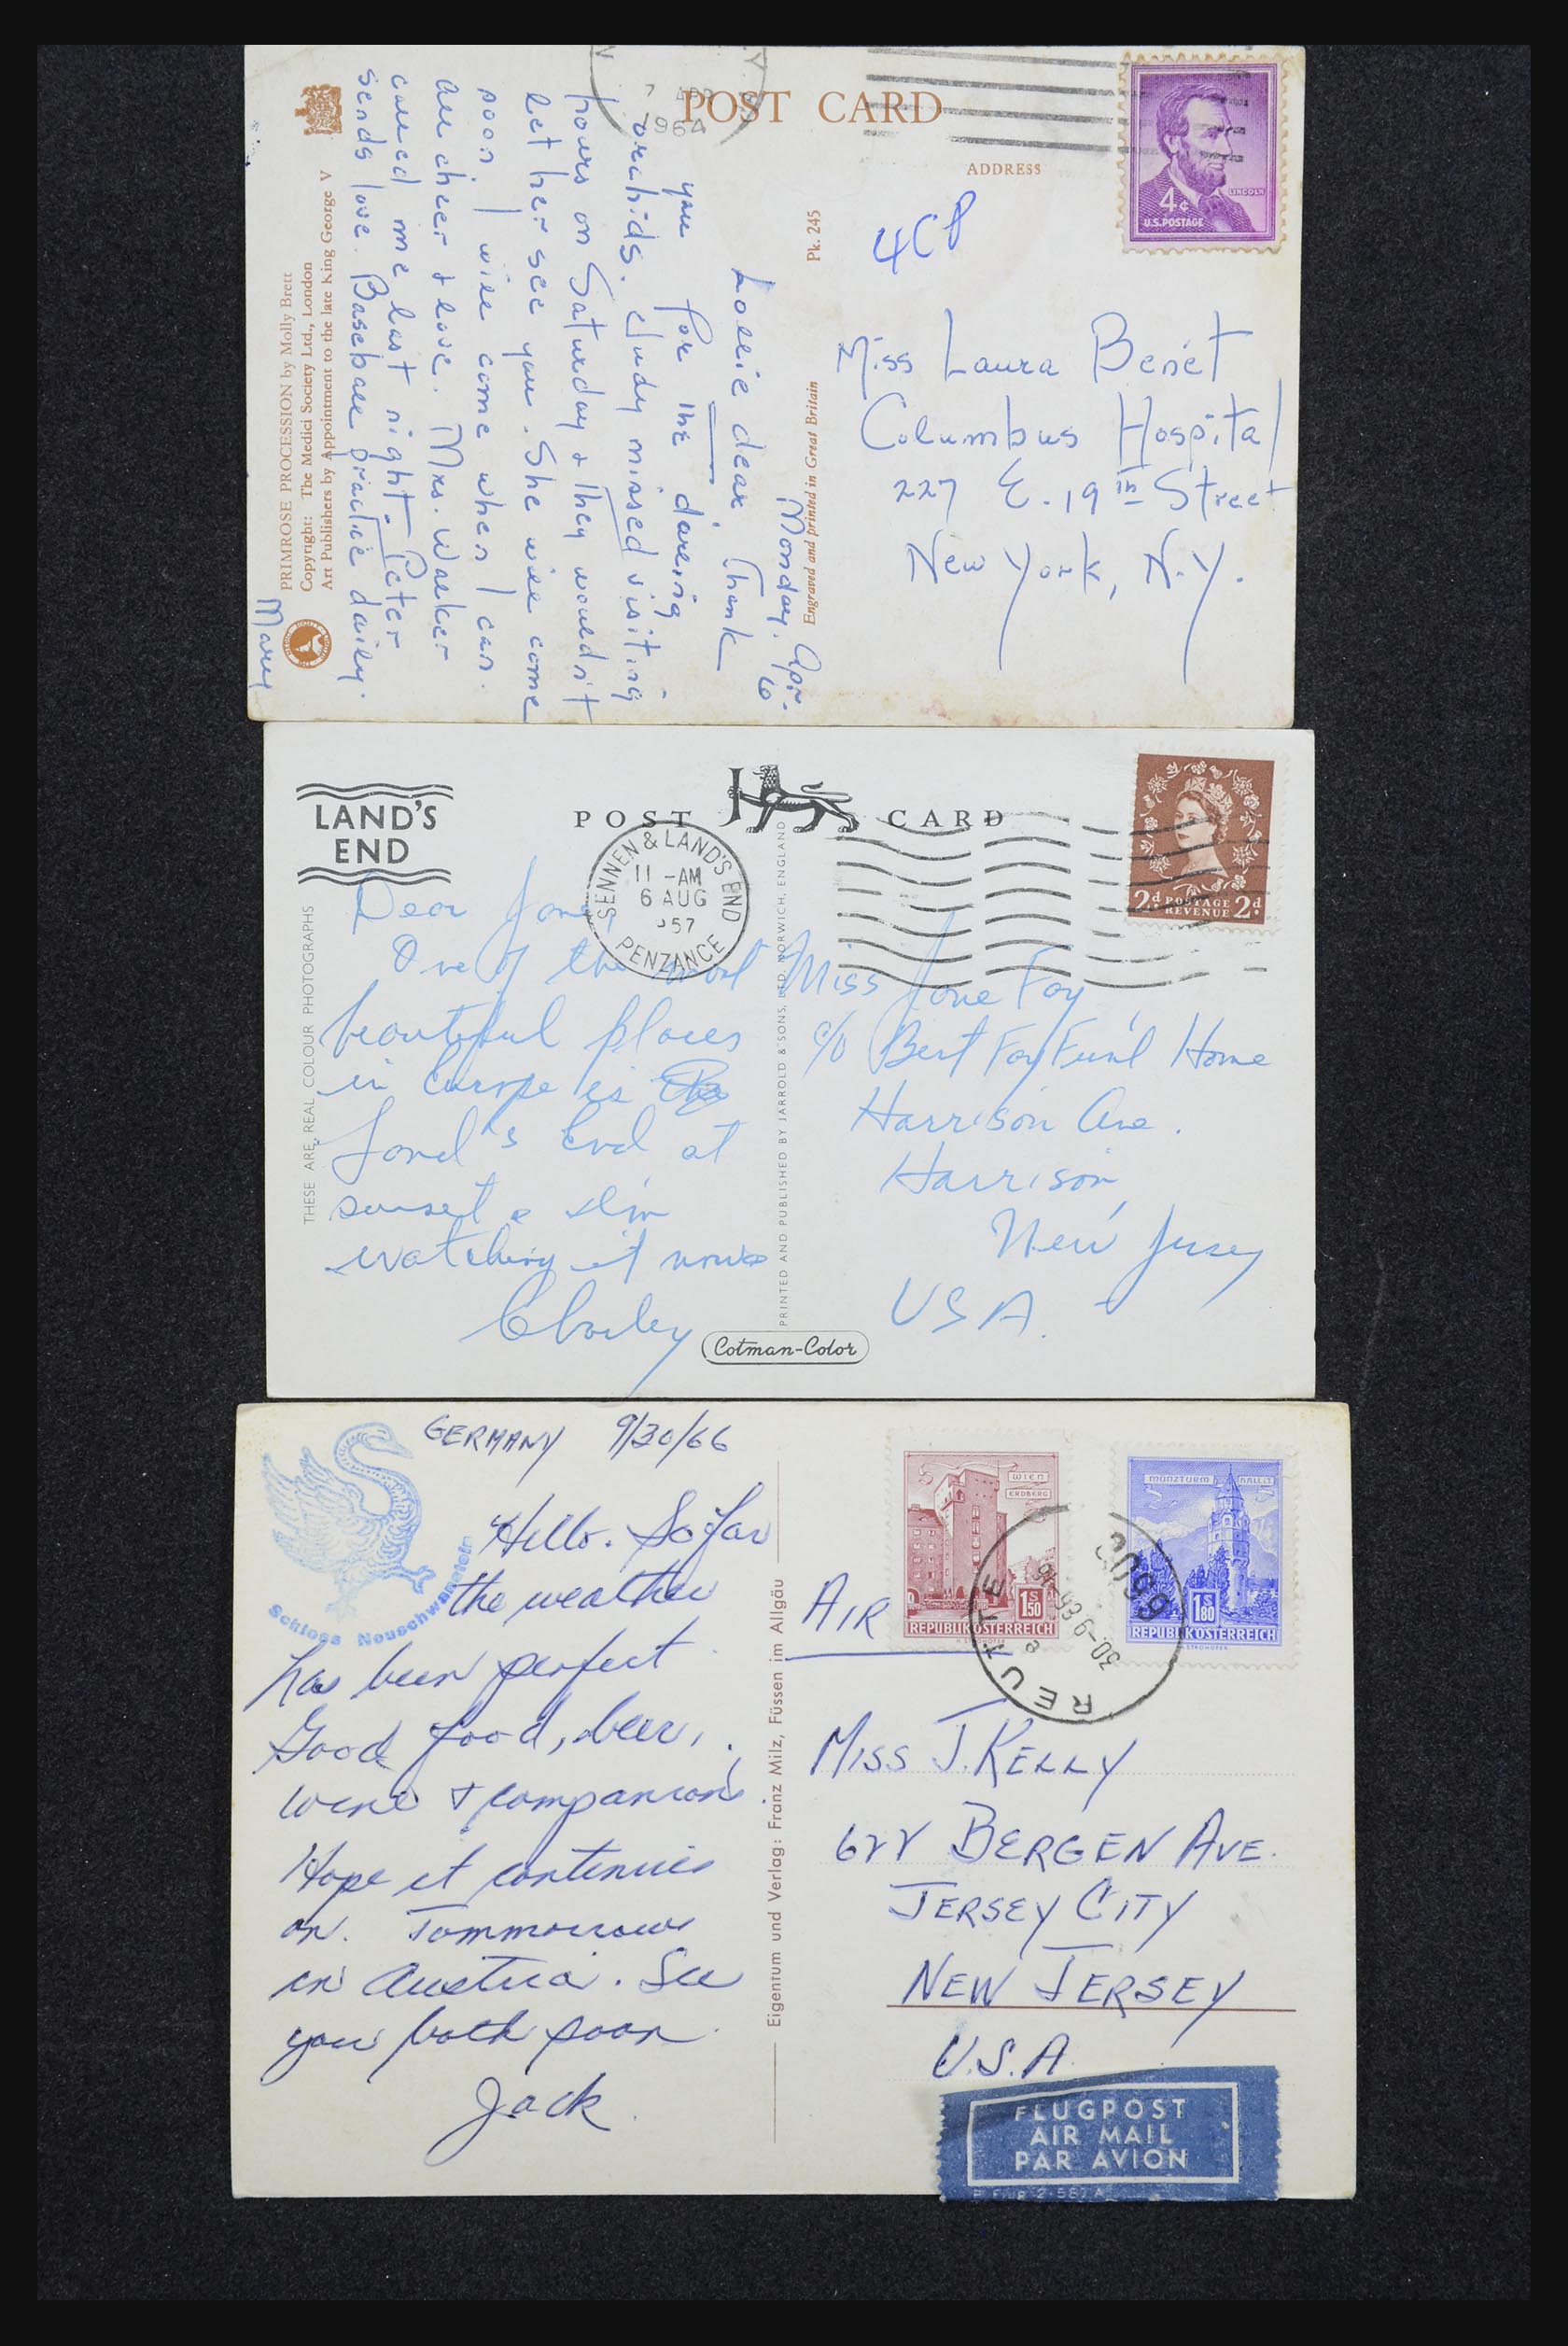 POST CARD
ADDRESS
LINCOLN
4¢
U.S. POSTAGE
7 APR
1964
4CP
Pk. 245
Engraved and printed in Great Britain
Miss Laura Benét
Columbus Hospital
227 E. 19th Street
New York, N.Y.
Monday. Apr.
6
Lollie dear, Thank
you for the darling
orchids. Judy missed visiting
hours on Saturday & they wouldn't
let her see you. She will come
soon. I will come when I can.
All cheer & love. Mrs. Walker
called me last night. Peter
sends love. Baseball practice daily.
Mary
PRIMROSE PROCESSION by Molly Brett
Copyright: The Medici Society Ltd., London
Art Publishers by Appointment to the late King George V
LAND'S
END
POST CARD
SENNEN & LAND'S END
11 - AM
6 AUG
957
PENZANCE
2d POSTAGE REVENUE 2d
THESE ARE REAL COLOUR PHOTOGRAPHS
Dear Jane,
One of the most
beautiful places
in Europe is
Land's End at
sunset & I'm
watching it now
Charley
PRINTED AND PUBLISHED BY JARROLD & SONS, LTD. NORWICH, ENGLAND
Miss Jane Foy
c/o Bert Foy Fun'l Home
Harrison Ave.
Harrison,
New Jersey
USA.
Cotman-Color
GERMANY 9/30/66
Schloss Neuschwanstein
Hello. So far
the weather
has been perfect
Good food, beer,
wine & companions.
Hope it continues
on. Tommorrow
in Austria. See
you both soon.
Jack.
Eigentum und Verlag: Franz Milz, Füssen im Allgäu
WIEN
ERDBERG
1S50
REPUBLIK ÖSTERREICH
MÜNZTURM HALL I.T.
1S80
REPUBLIK ÖSTERREICH
REUTTE
6600
AIR
MISS J. KELLY
622 BERGEN AVE.
JERSEY CITY
NEW JERSEY
U.S.A.
FLUGPOST
AIR MAIL
PAR AVION